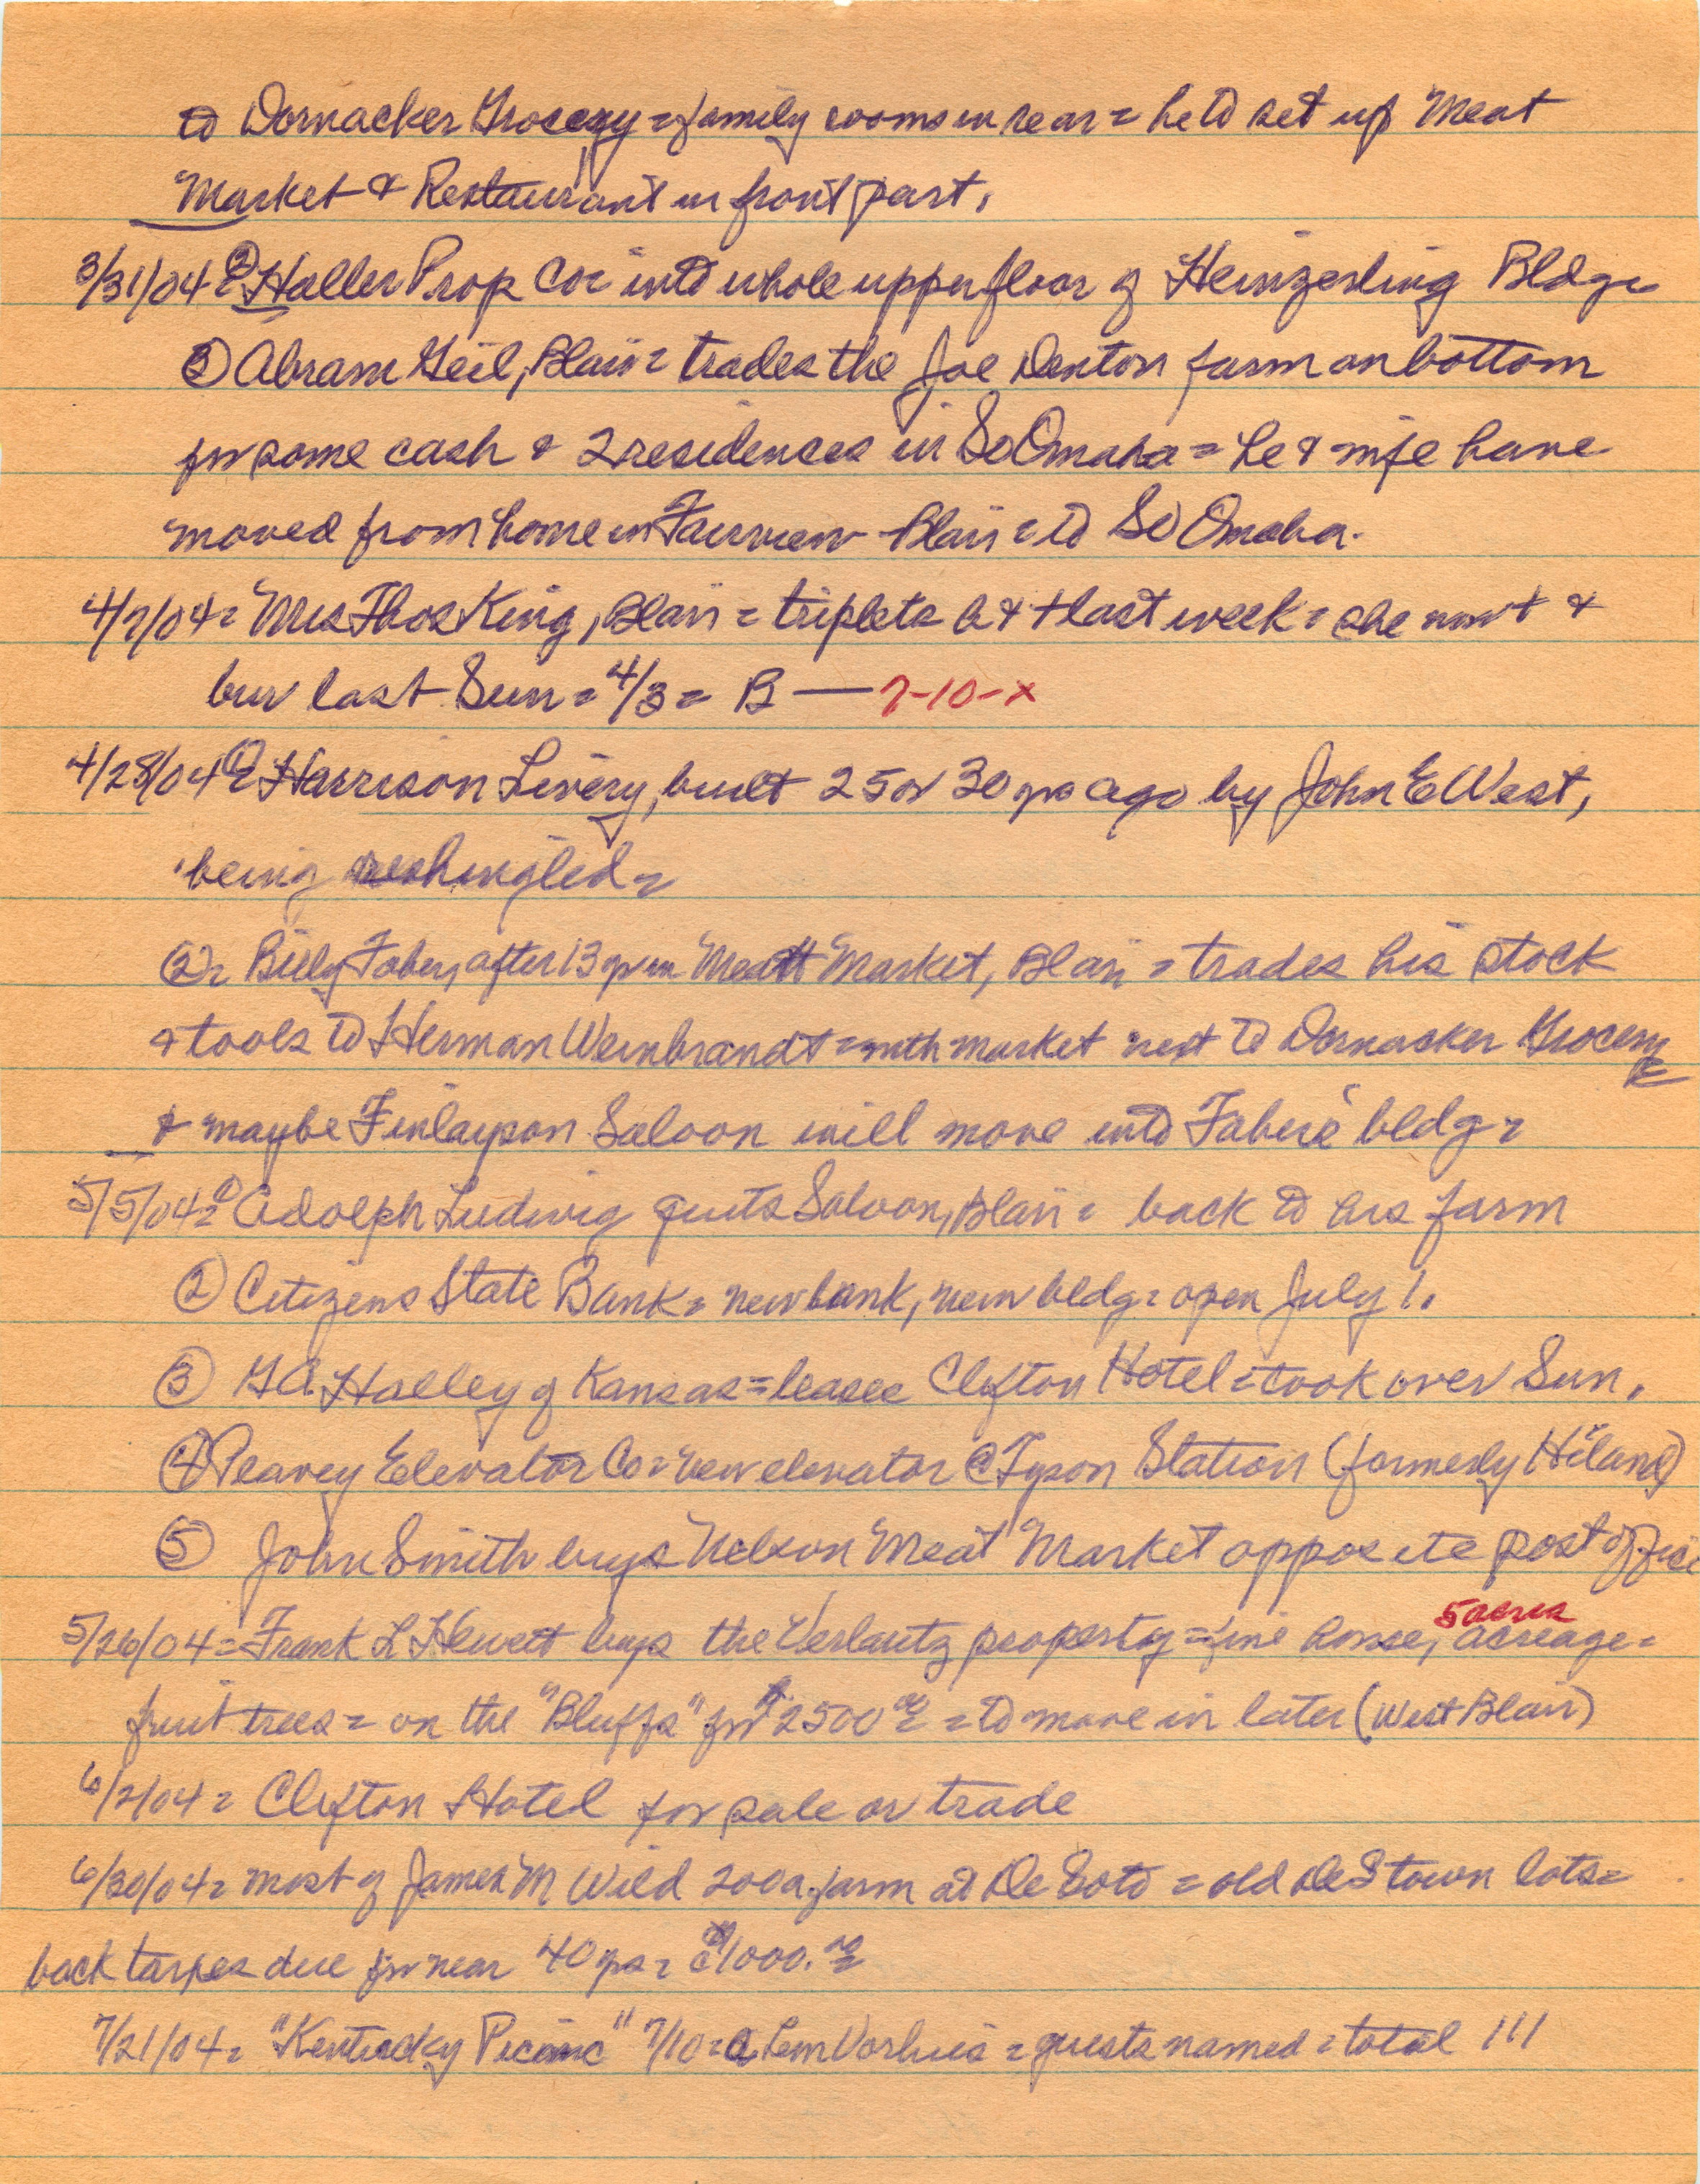 to Dornacker Grocery = family rooms in rear = he to set up Meat
Market & Restaurant in front part.
3/31/04 = ② Haller Prop Co = into whole upper floor of Heinzerling Bldg =
③ Abram Geil, Blair = trades the Joe Denton farm on bottom
for some cash & 2 residences in So Omaha = he & wife have
moved from home in Fairview - Blair = to So Omaha.
4/7/04 = Mrs Thos King, Blair = triplets b & + last week = she now + &
bur last Sun = 4/3 = B — 7-10-x
4/28/04 = ① Harrison Livery, built 25 or 30 yrs ago by John E West,
being reshingled =
② = Billy Faber, after 13 yr in Meat Market, Blair = trades his stock
& tools to Herman Weinbrandt = with market next to Dornacker Grocery =
& maybe Finlayson Saloon will move into Fabers' bldg =
5/5/04 = ① Adolph Ludwig quits Saloon, Blair = back to his farm
② Citizens State Bank = new bank, new bldg = open July 1.
③ G A Halley of Kansas = leases Clifton Hotel = took over Sun.
④ Peavey Elevator Co = new elevator @ Tyson Station (formerly Hiland)
⑤ John Smith buys Nelson Meat Market opposite post office
5 acres
5/26/04 = Frank L Hewett buys the Verlautz property = fine house, acreage =
fruit trees = on the "Bluffs" for $2500 00 = to move in later (West Blair)
6/2/04 = Clifton Hotel for sale or trade
6/30/04 = most of James M Wild 200 a. farm at De Soto = old DeS town lots =
back taxes due for near 40 yrs = $1000. 00
7/21/04 = "Kentucky Picnic" 7/10 = @ Lem Vorhies = guests named = total 111